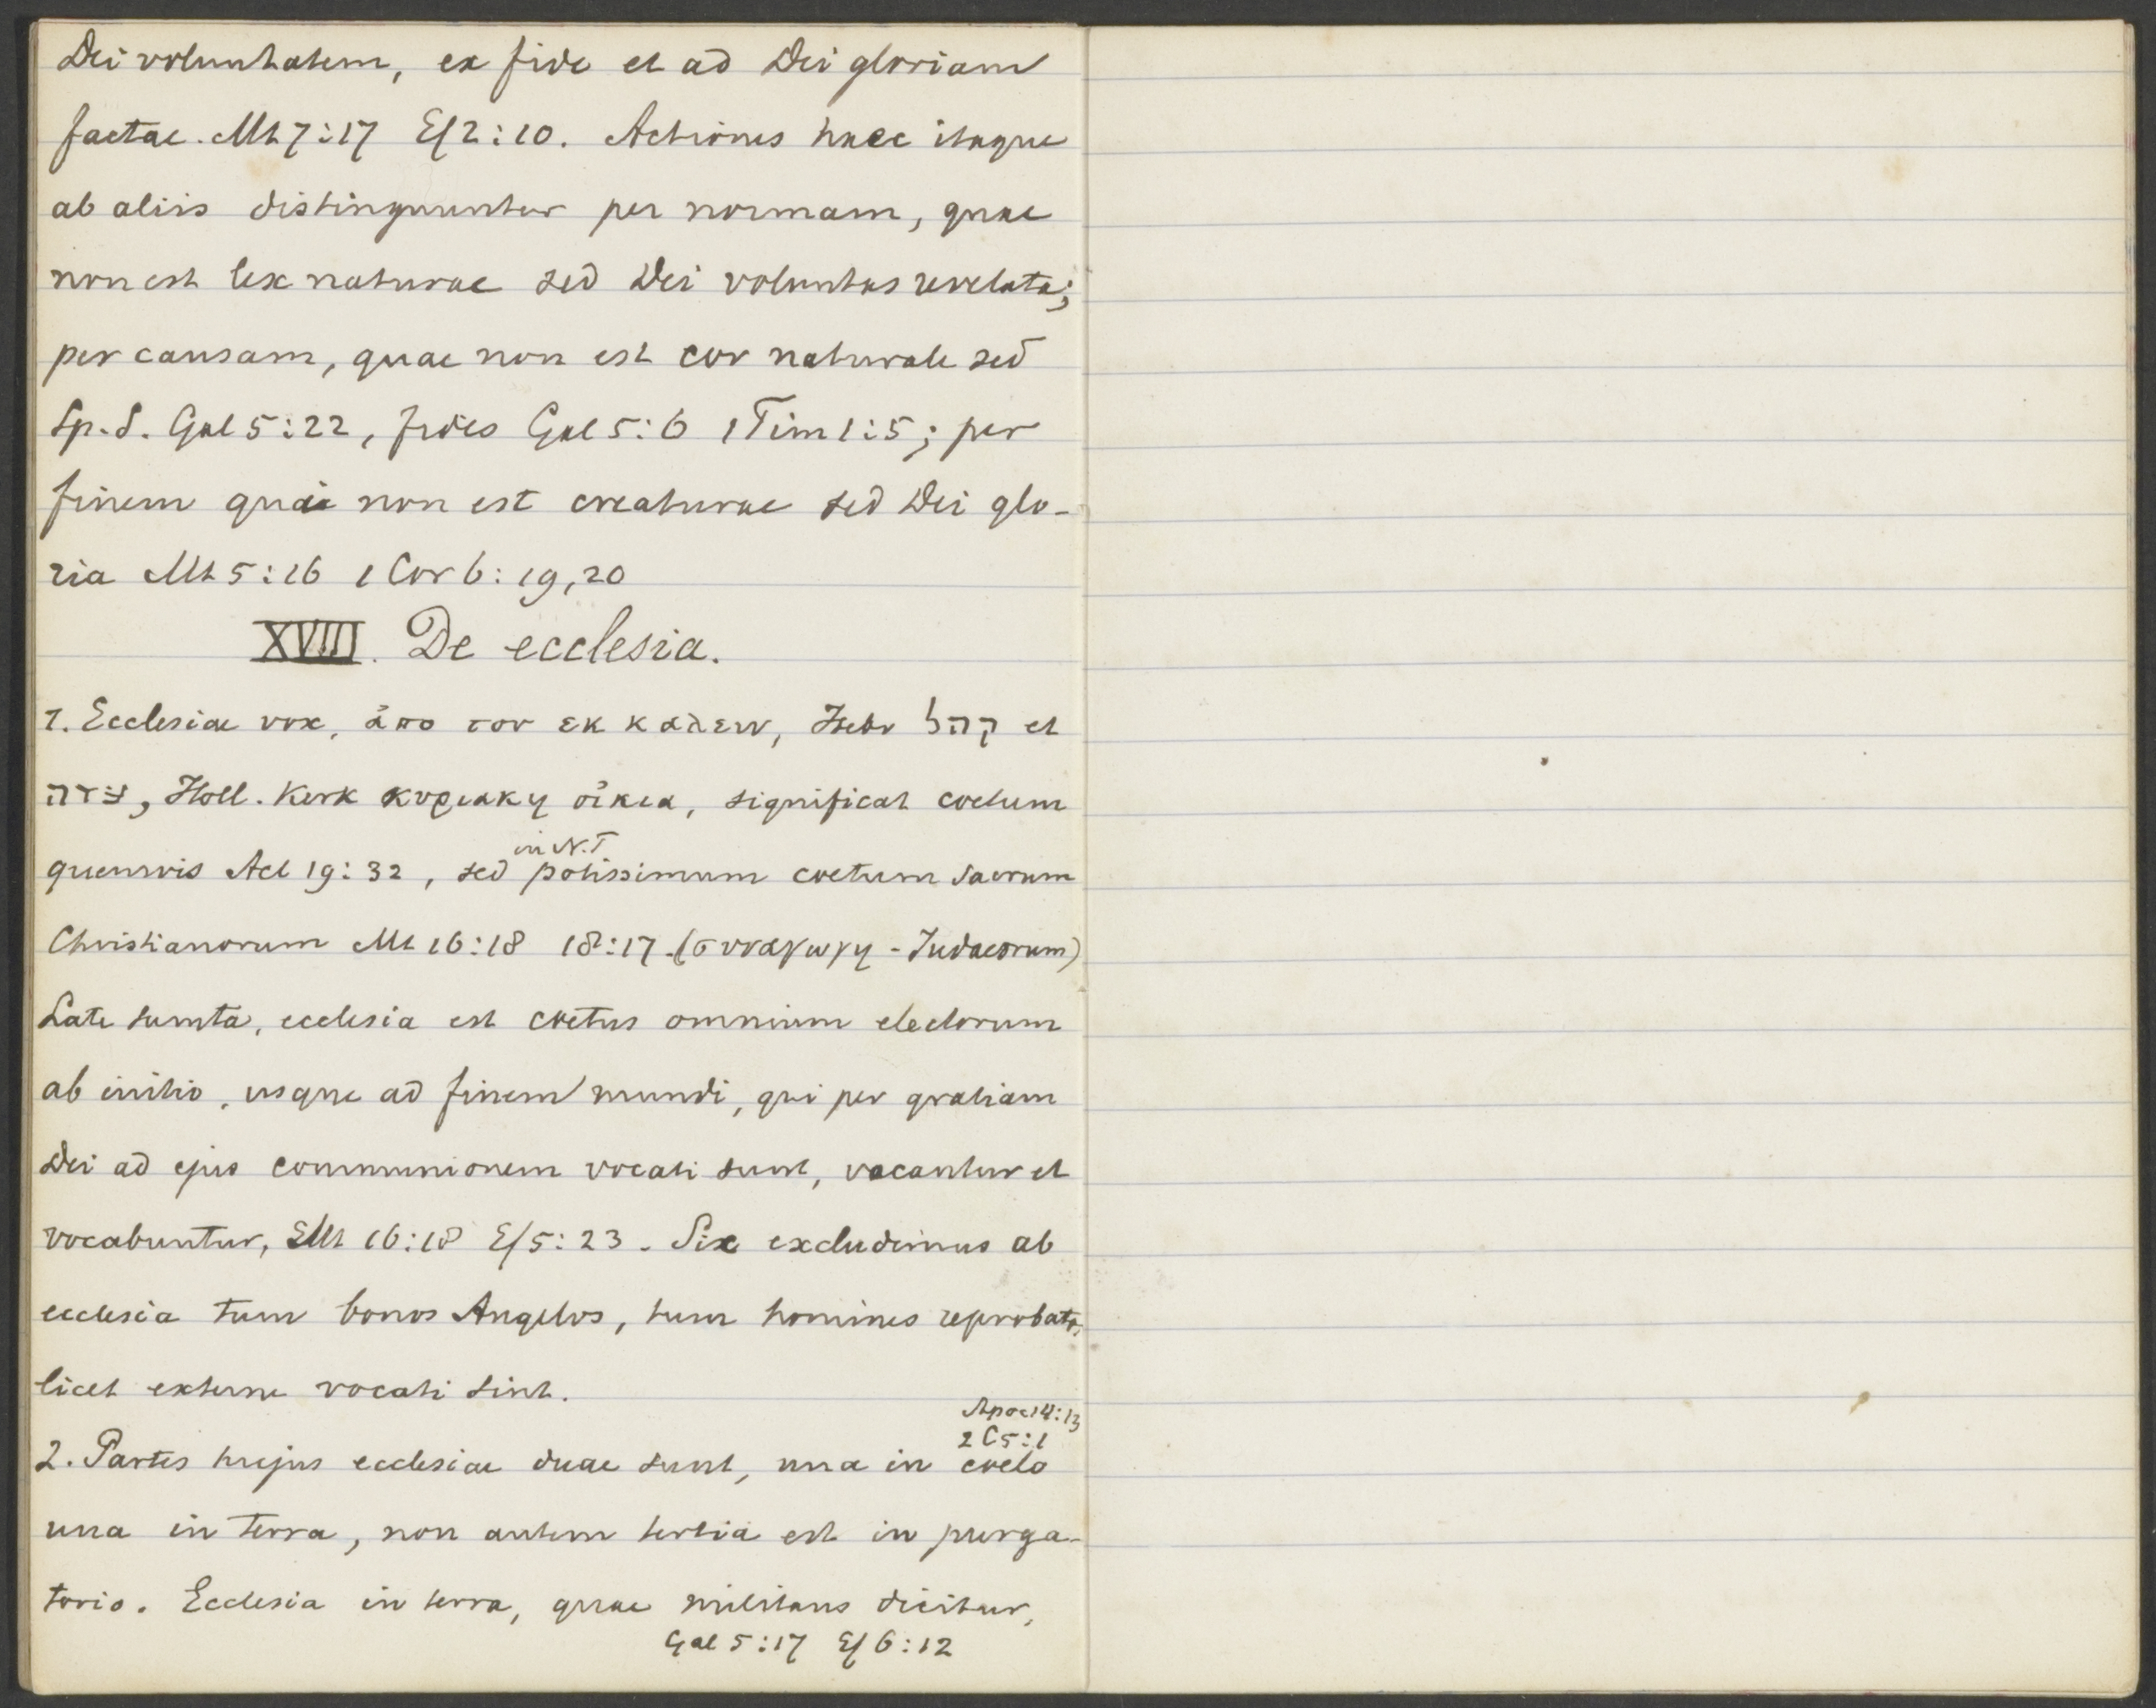 Dei voluntatem, ex fide et ad Dei gloriam
factae. Mt 7:17 Ef 2:10. Actiones haec itaque
ab aliis distinguuntur per normam, quae
non est lex naturae sed Dei voluntas revelata;
per causam, quae non est cor naturale sed
Sp. S. Gal 5:22, fides Gal 5:6 1 Tim 1:5; per
finem quae non est creaturae sed Dei glo-
ria Mt 5:16 1 Cor 6:19,20
XVIII. De ecclesia.
1. Ecclesiae vox, ἀπο του εκ καλειν, Hebr קהל et
עדה, Holl. Kerk κυριακη οἰκια, significat coetum
in N.T
quemvis Act 19:32, sed potissimum coetum sacrum
Christianorum Mt 16:18 18:17. (συναγωγη - Judaeorum)
Late sumta, ecclesia est coetus omnium electorum
ab initio, usque ad finem mundi, qui per gratiam
Dei ad ejus communionem vocati sunt, vocantur et
vocabuntur, Mt 16:18 Ef 5:23. Sic excludimus ab
ecclesia tum bonos Angelos, tum homines reprobatos,
licet externe vocati sint.
Apoc 14:13
2 C 5:1
2. Partes hujus ecclesiae duae sunt, una in coelo
una in terra, non autem tertia est in purga-
torio. Ecclesia in terra, quae militans dicitur,
Gal 5:17 Ef 6:12